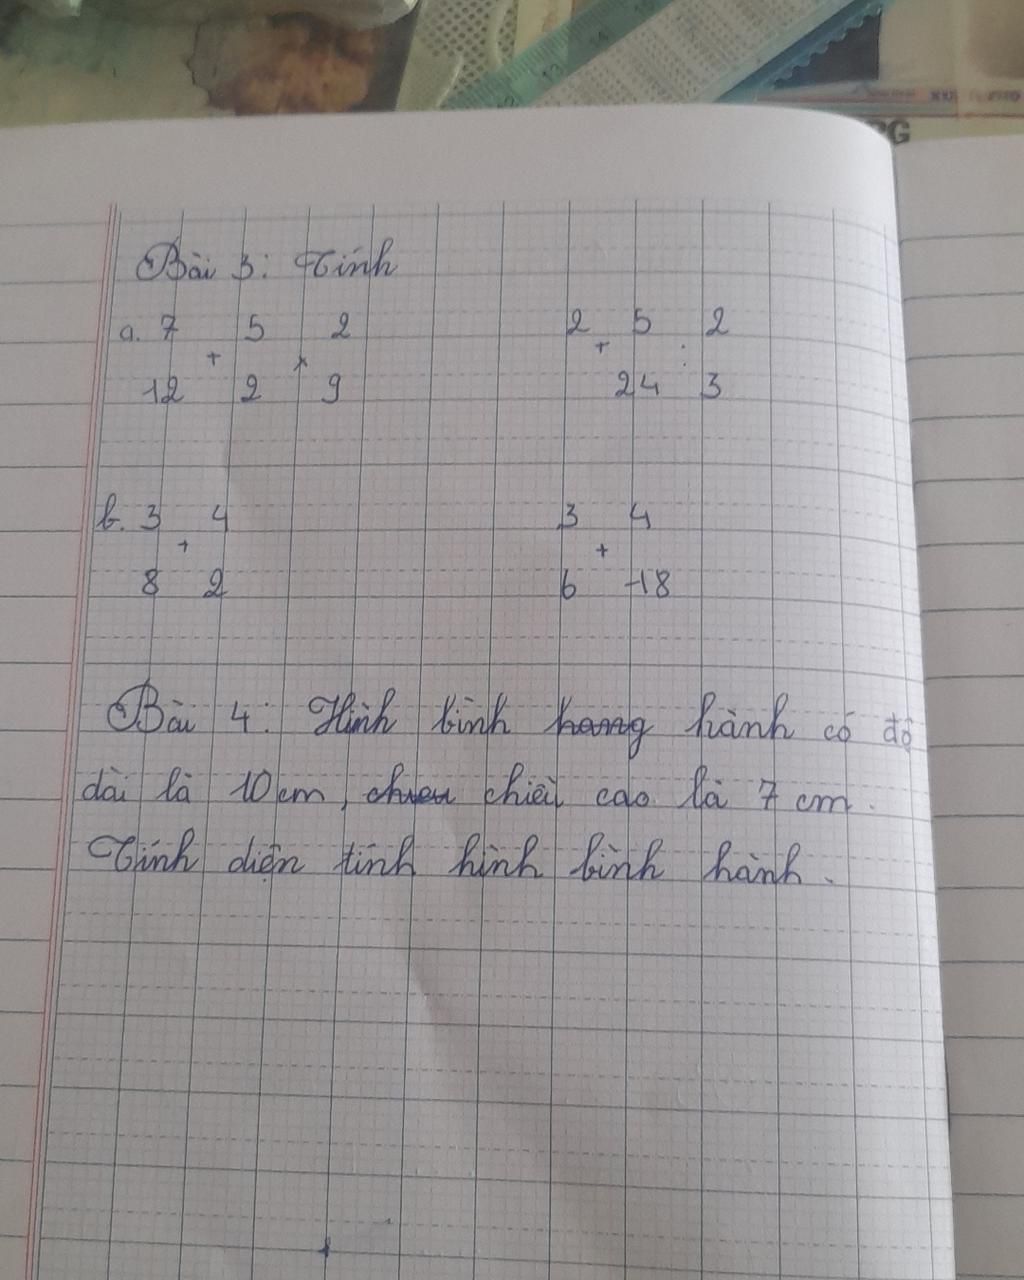 Bài 3: Tính
a. 7 5 2 2 5 2
+ x + :
12 2 9 24 3
b. 3 4 3 4
+ +
8 2 6 18
Bài 4: Hình bình hang hành có độ
dài là 10 cm, chieu chiều cao là 7 cm.
Tính diện tính hình bình hành.